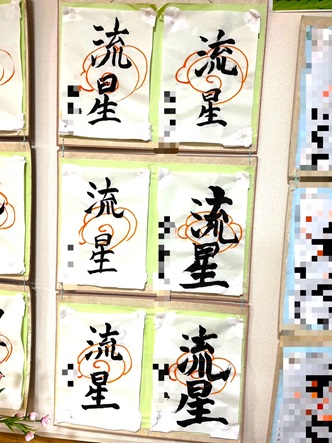 流星
流星
流星
流星
流星
流星